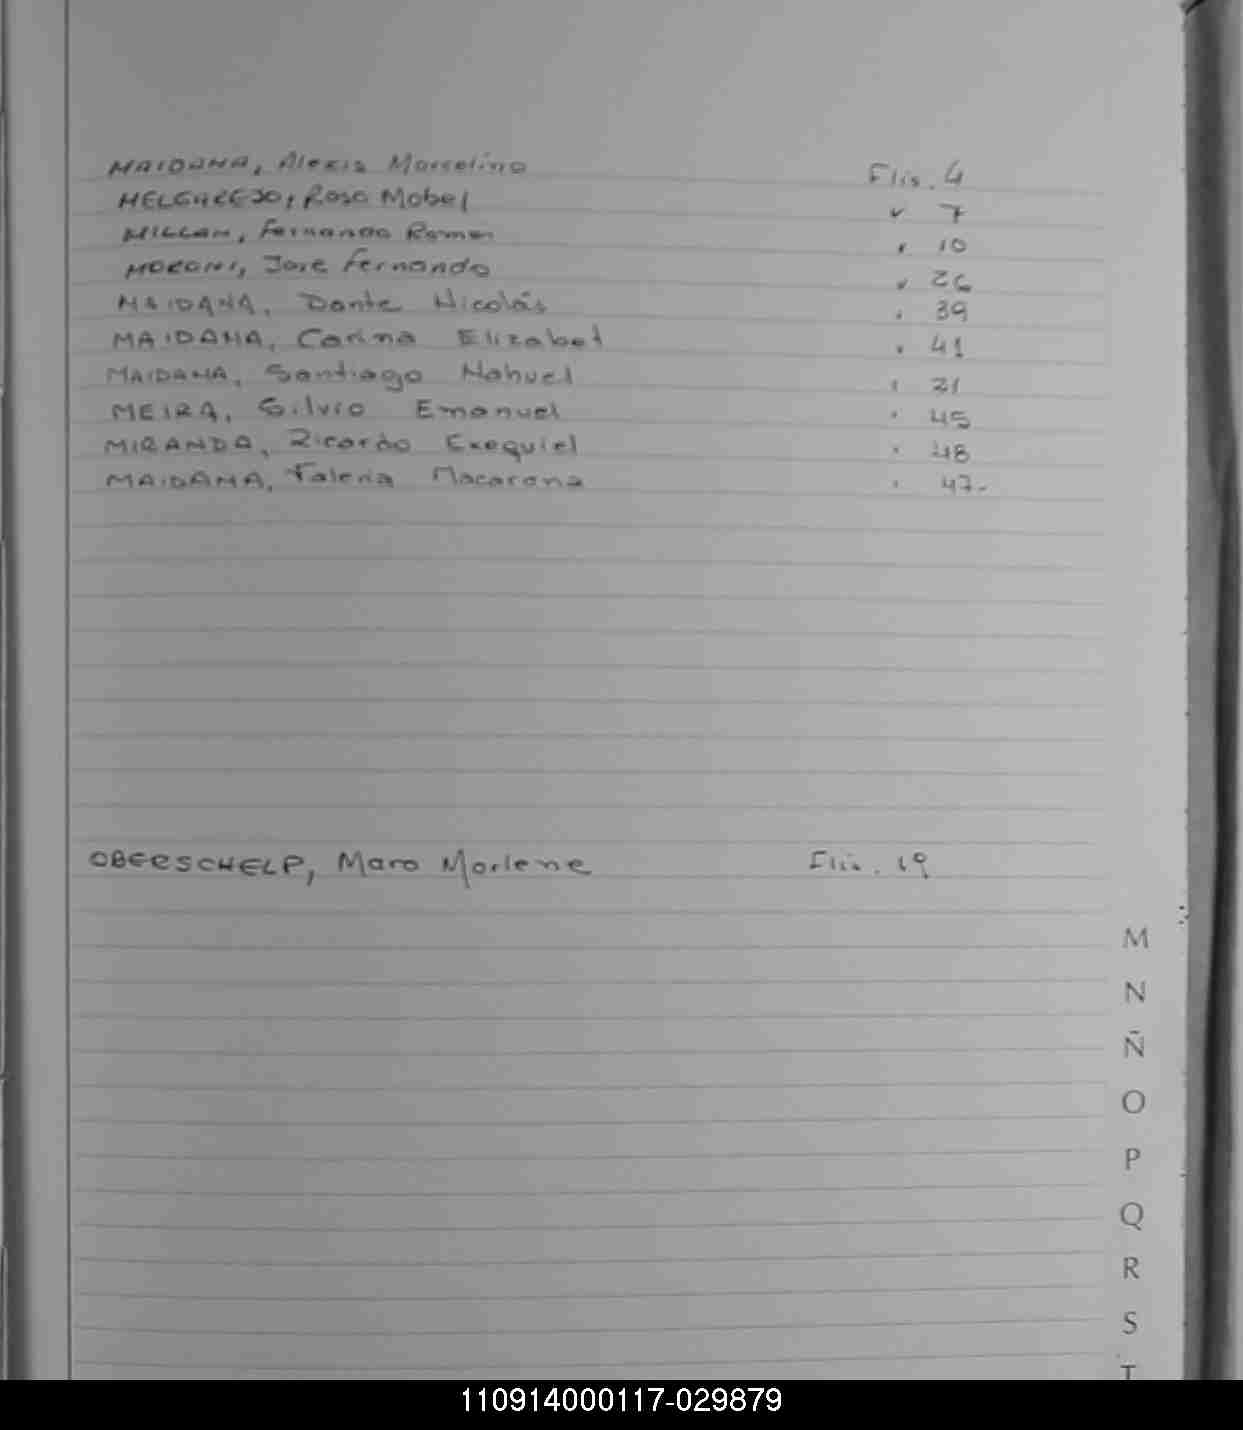 MAIDANA, Alexis Marcelino Flio. 4
MELGAREJO, Rosa Mabel " 7
MILLAN, Fernando Ramon " 10
MORONI, Jose Fernando " 26
MAIDANA, Dante Nicolás " 39
MAIDANA, Carina Elizabet " 41
MAIDANA, Santiago Nahuel " 31
MEIRA, Silvio Emanuel " 45
MIRANDA, Ricardo Exequiel " 48
MAIDANA, Valeria Macarena " 47-
OBERSCHELP, Mara Marlene Flio. 19
M
N
Ñ
O
P
Q
R
S
T
110914000117-029879